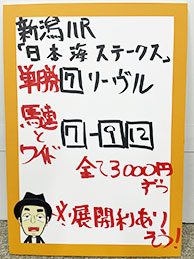 新潟11R
「日本海ステークス」
単勝 7 リーヴル
馬連とワイド 7-9 12
全て3000円ずつ
※展開利ありそう!